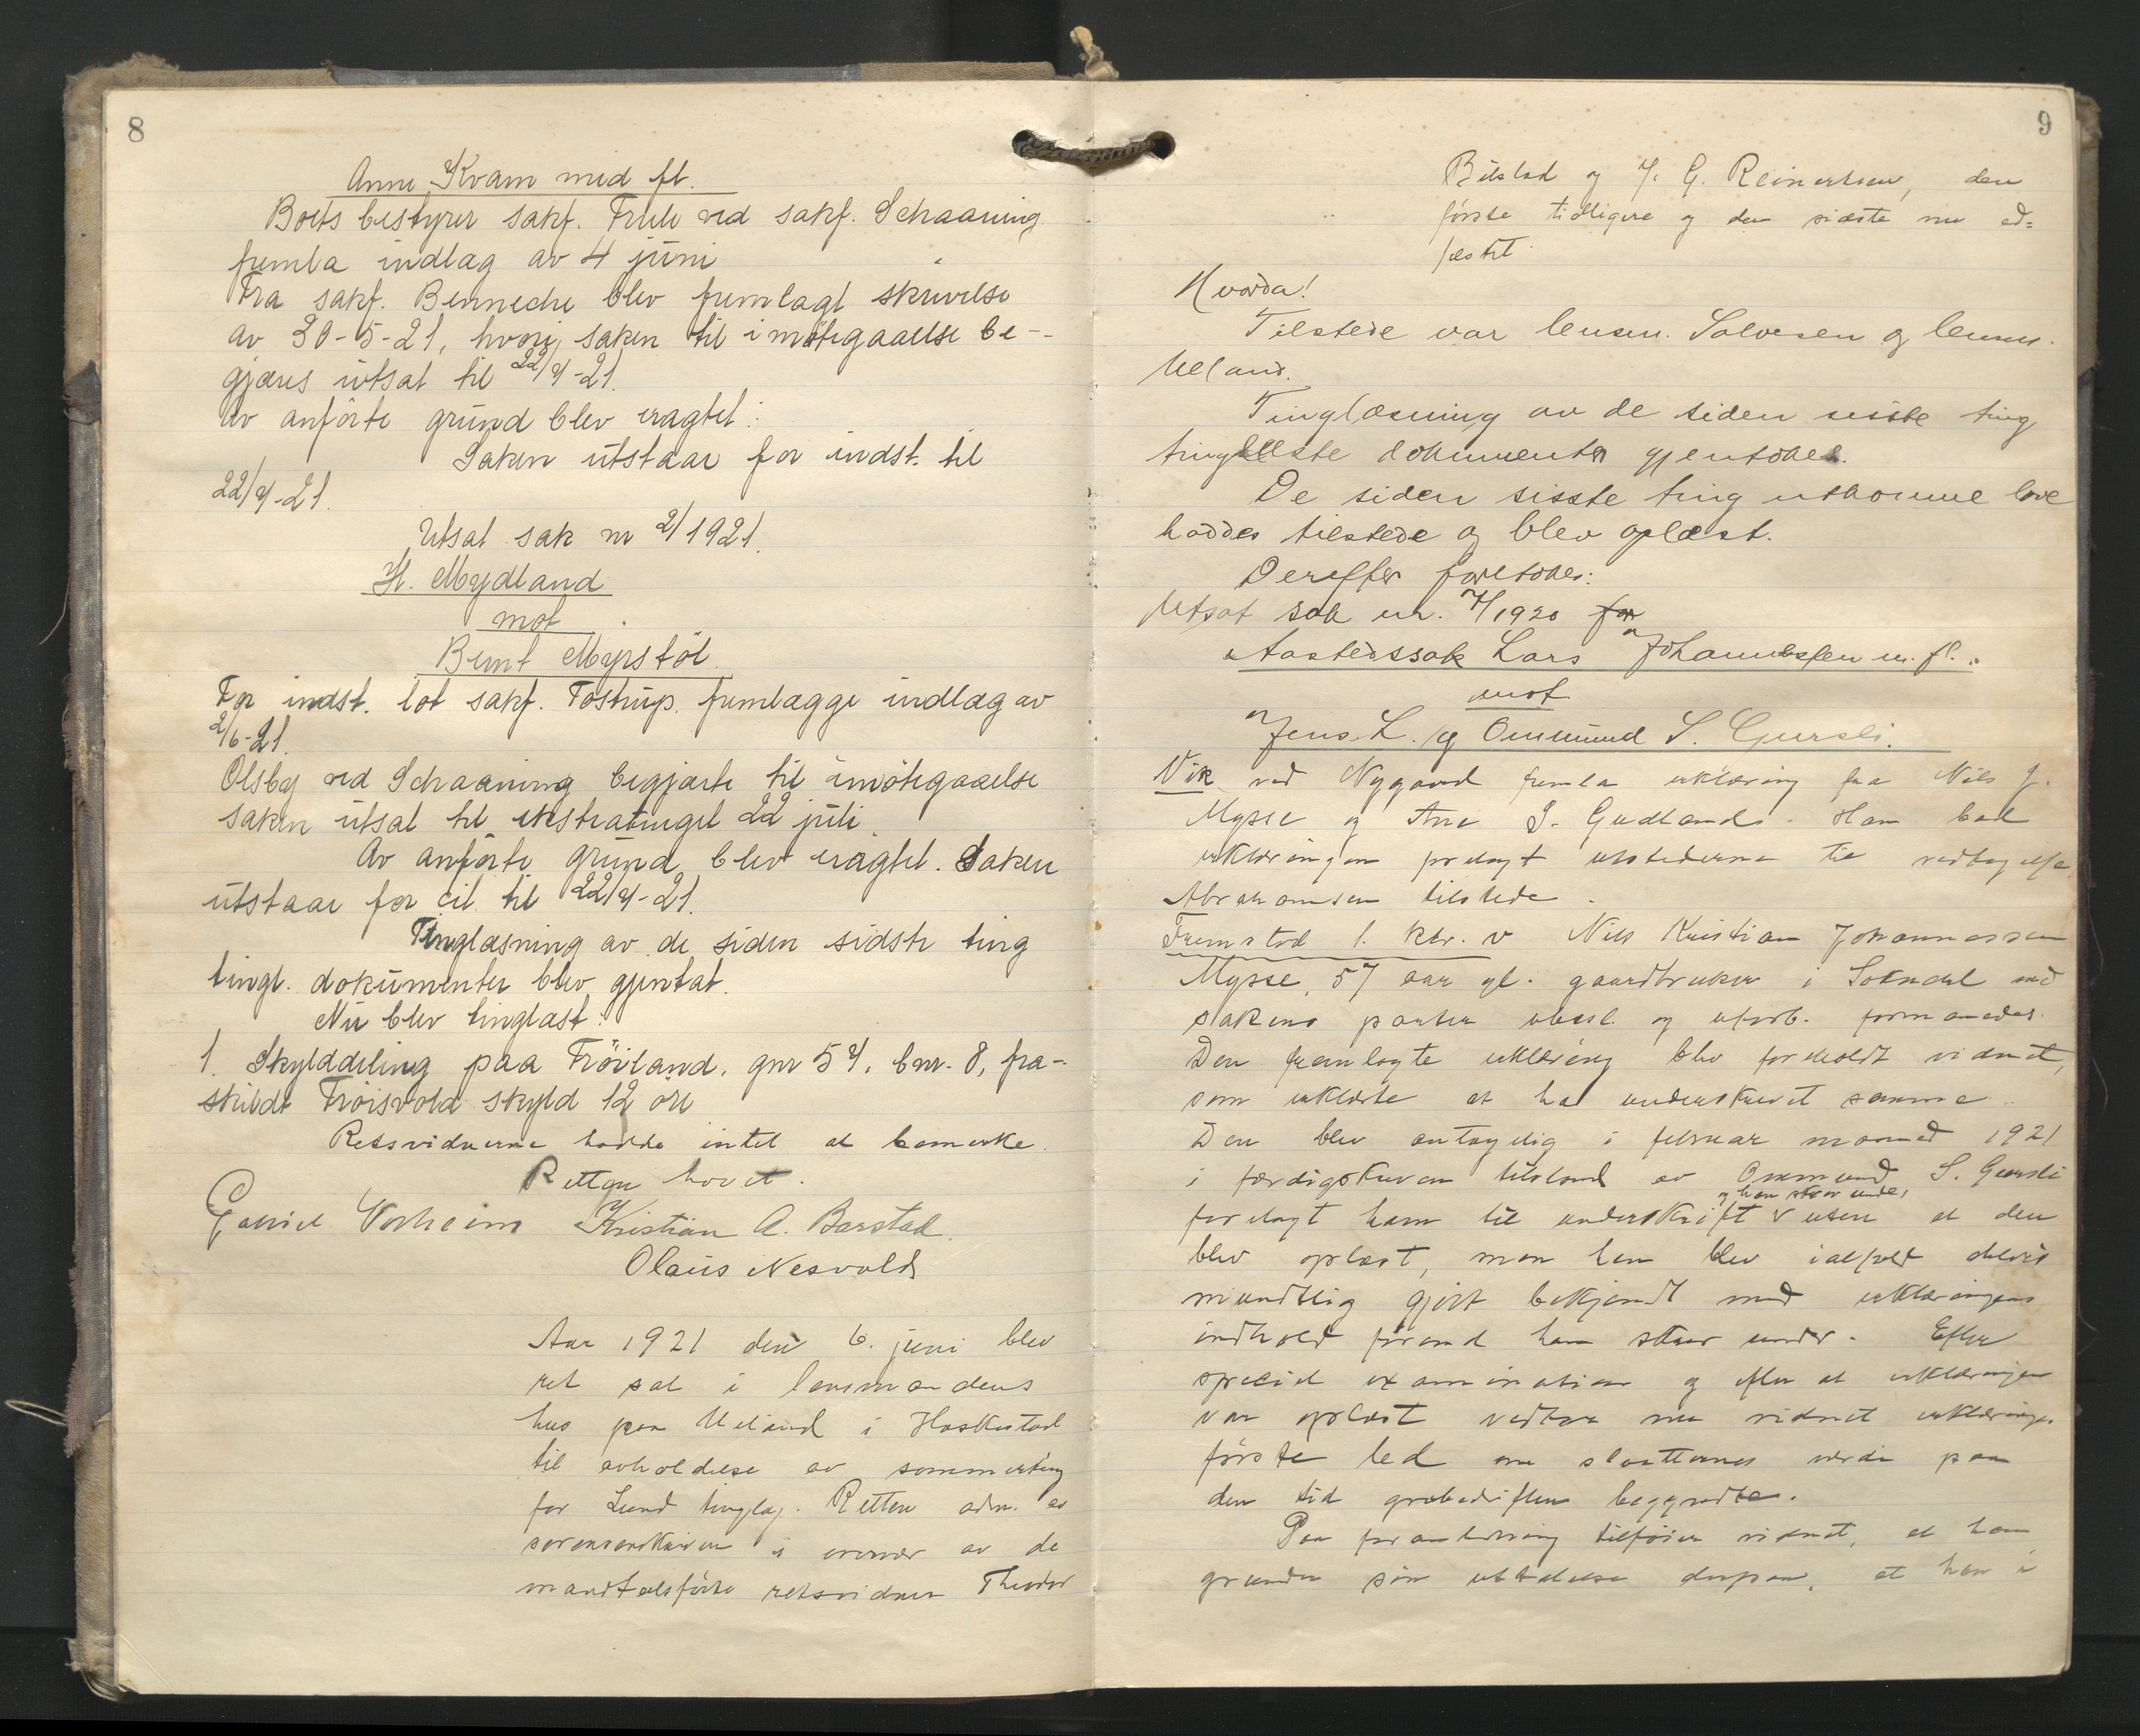 8
Anne Kvam med fl.
Boets bestyrer sakf. Friele ved sakf. Schaaning
fremla indlæg av 4 juni
Fra sakf. Benneche blev fremlagt skrivelse
av 30-5-21, hvori saken til imøtegaaelse be-
gjæres utsat til 22/7-21.
Av anførte grund blev eragtet:
Saken utstaar for indst. til
22/7-21.
Utsat sak nr 2/1921.
H. Mydland
mot
Bernt Myrstøl
For indst. lot sakf. Tostrup fremlægge indlæg av
2/6-21.
Olsby ved Schaaning begjærte til imøtegaaelse
saken utsat til ekstratinget 22 juli.
Av anførte grund blev eragtet. Saken
utstaar for cit. til 22/7-21.
Tinglæsning av de siden sidste ting
tingl. dokumenter blev gjentat.
Nu blev tinglæst:
1. Skylddeling paa Frøiland, gnr 57, bnr. 8, fra-
skildt Frøisvold skyld 12 øre
Retsvidnerne hadde intet at bemerke.
Retten hævet.
Gabriel Vorheim Kristian A. Barstad.
Olaus Nesvold
Aar 1921 den 6. juni blev
ret sat i lensmandens
hus paa Ueland i Heskestad
til avholdelse av sommerting
for Lund tinglag. Retten adm. av
sorenskriveren i overvær av de
mandtalsførte retsvidner Theodor
9
Bilstad og J. G. Reinertsen, den
første tidligere og den sidste nu ed-
fæstet.
Hvorda!
Tilstede var lensm. Salvesen og lensm.
Ueland.
Tinglæsning av de siden sisste ting
tinglæste dokumenter gjentokes.
De siden sisste ting utkomne love
haddes tilstede og blev oplæst.
Derefter foretokes:
Utsat sak nr. 7/1920 for
Aastedssak Lars Johannessen m. fl.
mot
Jens L. og Ommund S. Gursli.
Vik ved Nygaard fremla erklæring fra Nils J.
Mysse og Ane S. Gudlands. Han bad
erklæringen forelagt utstederne til vedtagelse.
Abrahamsen tilstede.
Fremstod 1. ktr. v Nils Kristian Johannessen
Mysse, 57 aar gl. gaardbruker i Sokndal med
sakens parter ubesl. og uforb. formanedes.
Den fremlagte erklæring blev foreholdt vidnet,
som erklærte at ha underskrevet samme.
Den blev antagelig i februar maaned 1921
i færdigskreven tilstand av Ommund S. Gursli
forelagt ham til underskrift v uten at den
og han skrev under,
blev oplæst, men han blev ialfald delvis
mundtlig gjort bekjendt med erklæringens
indhold førend han skrev under. Efter
speciel examination og efter at erklæringen
var oplæst vedtar nu vidnet erklæringens
første led om slaatternes værdi paa
den tid grubedriften begyndte.
Paa foranledning tilføier vidnet, at han
grunder sin uttalelse derpaa, at han i